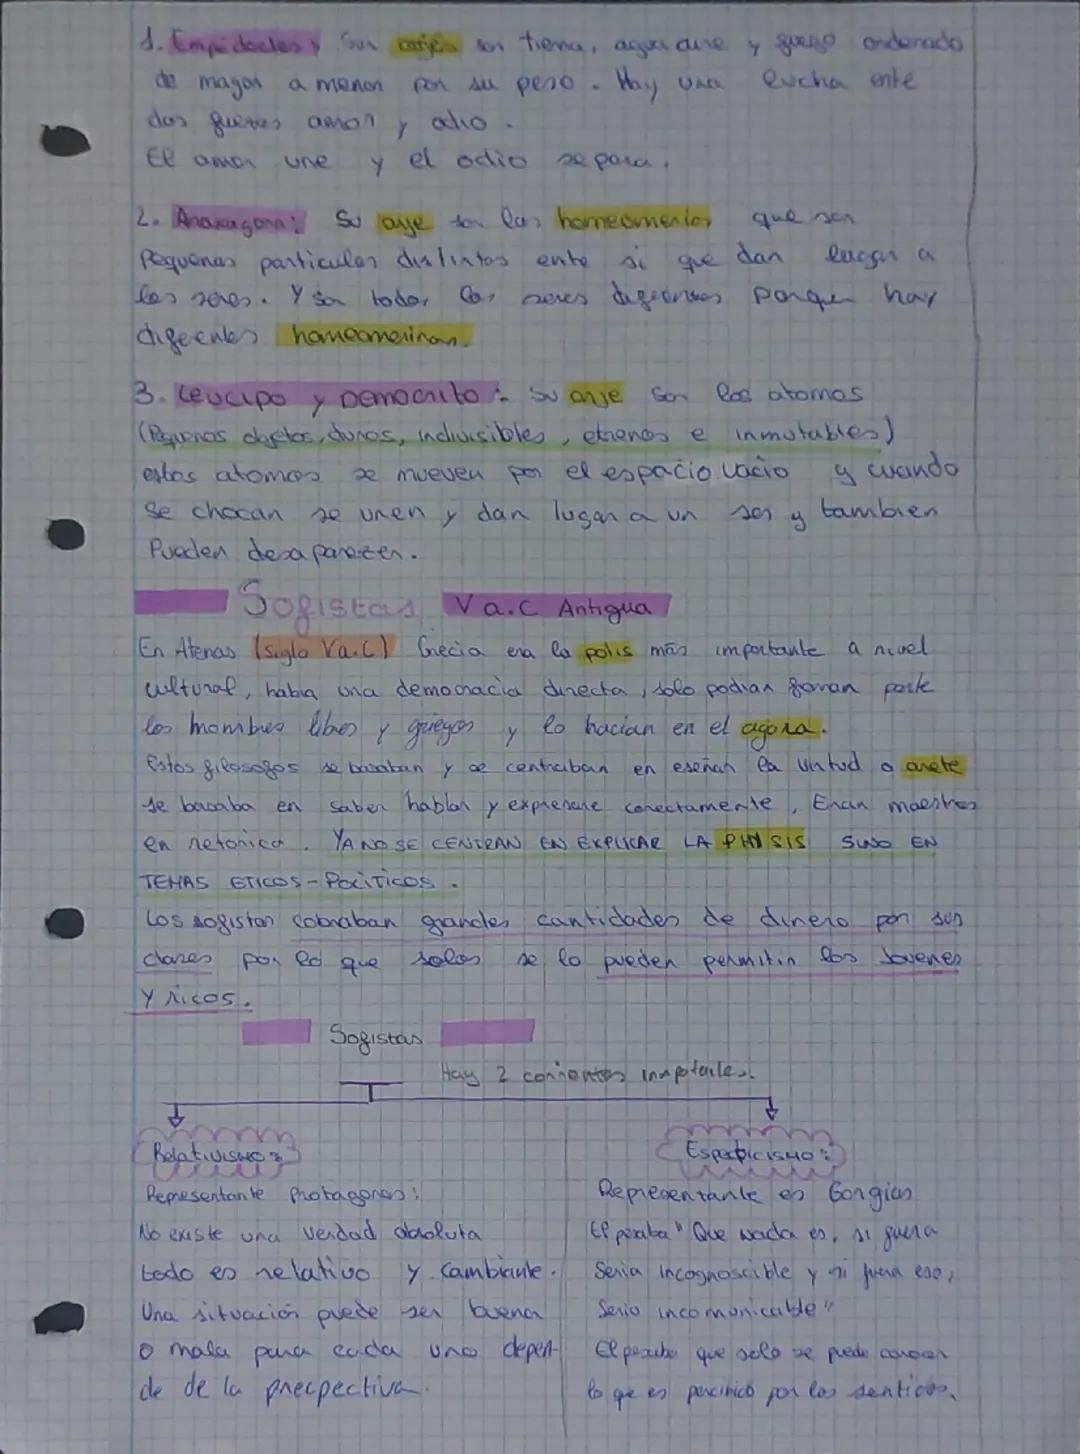 1. Empédocles: Sus arjés son tierra, agua aire y fuego ordenado
de mayor a menor por su peso. Hay una lucha ente
dos fuerzas amor y odio.
El amor une y el odio separa.
2. Anaxagora: Su arje son las homeomerias que son
Pequeñas particulas distintas ente si que dan lugar a
los seres. Y son todos los seres diferentes porque hay
diferentes homeomerinas.
3. Leucipo y Democrito: Su arje son los atomos
(Pequeños objetos, duros, indivisibles, eternos e inmutables)
estos atomos se mueven por el espacio vacio y cuando
se chocan se unen y dan lugar a un ser y tambien
Pueden desaparecer.
Sofistas V a.C Antigua
En Atenas (siglo V a.C) Grecia era la polis más importante a nivel
cultural, habia una democracia directa, solo podian forman parte
los hombres libres y griegos y lo hacian en el agora.
Estos filosofos se basaban y se centraban en eseñar la virtud o arete
se basaba en saber hablar y expresarse correctamente, Eran maestros
en retorica. YA NO SE CENTRAN EN EXPLICAR LA PHYSIS SINO EN
TEMAS ETICOS-POLITICOS.
Los sofistas cobraban grandes cantidades de dinero por sus
clases por lo que solos se lo pueden permitir los Jovenes
Y ricos.
Sofistas
Hay 2 corrientes
Relativismo:
Representante Protagoras:
No existe una verdad absoluta
todo es relativo y cambiante.
Una situación puede ser buena
o mala para cada uno depen-
de de la precpectiva.
Representante es Gorgias
El "Que nada es, si fuera
Seria Incognoscible y si fuera eso,
Seria incomunicable"
El que solo se puede conocer
lo que es por los sentidos.